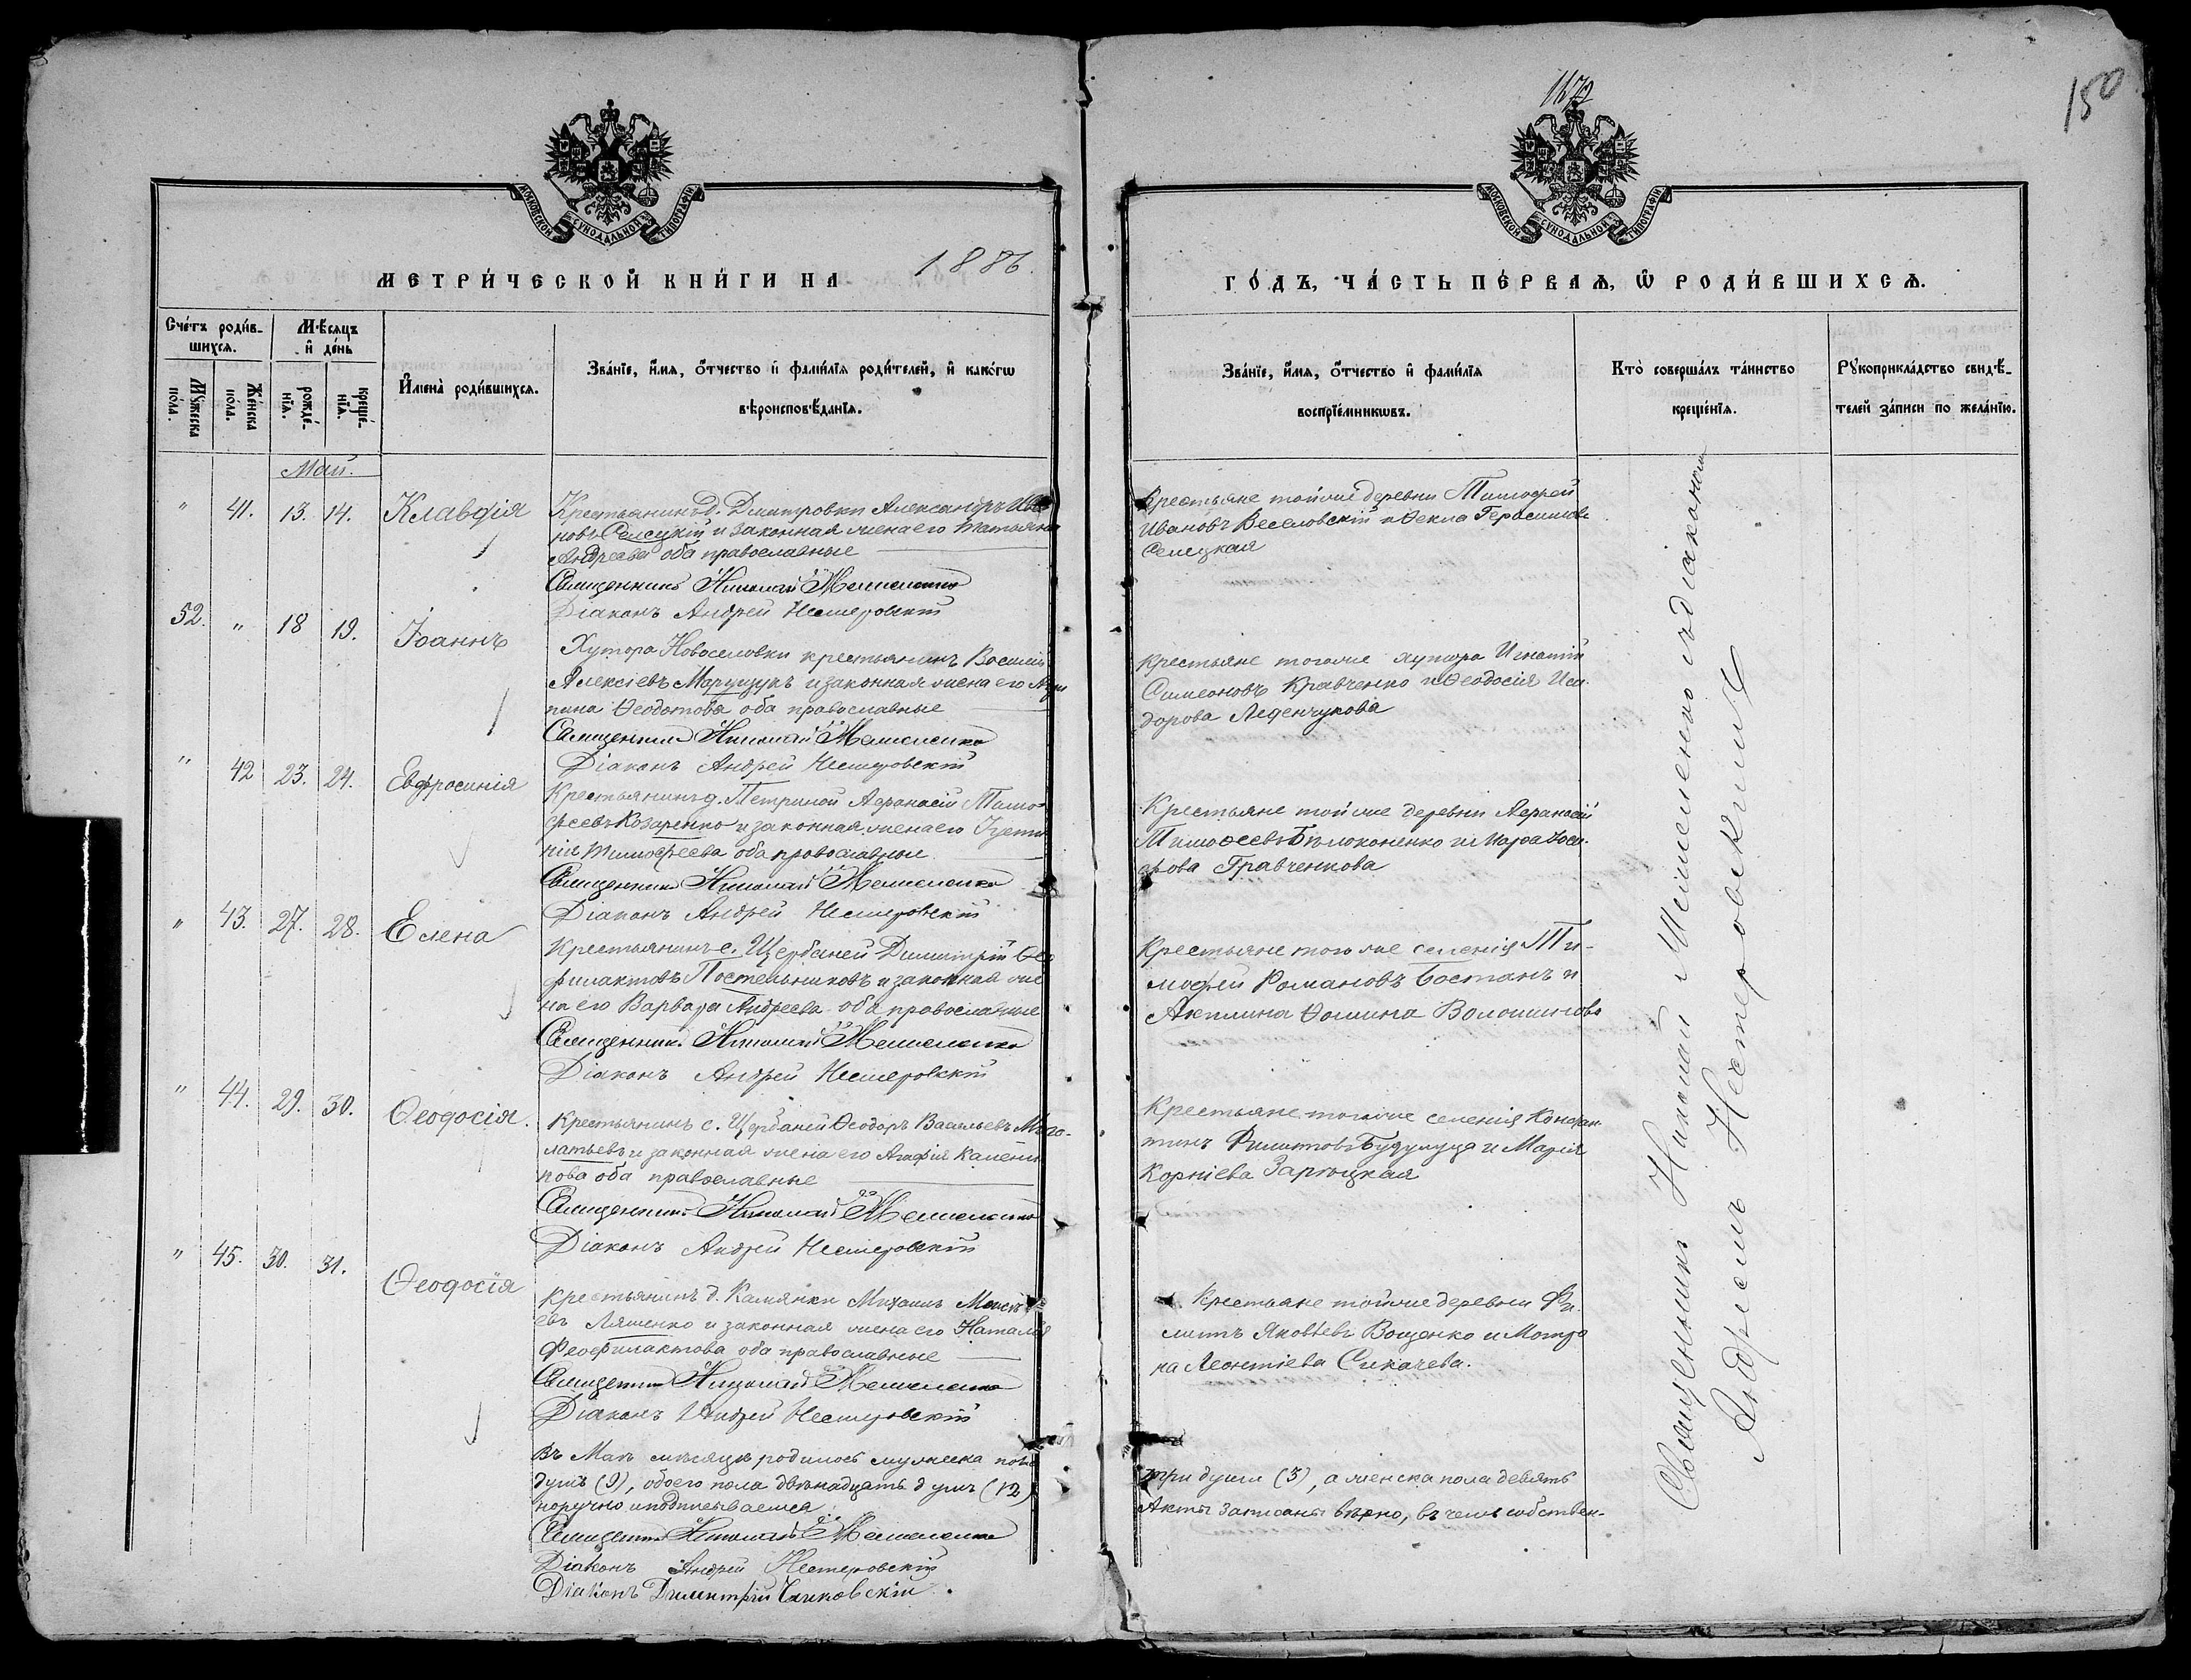 1672
150
МОСКОВСКОЙ СѴНОДАЛЬНОЙ ТИПОГРАФІИ
МОСКОВСКОЙ СѴНОДАЛЬНОЙ ТИПОГРАФІИ
МЕТРИ́ЧЕСКОЙ КНИ́ГИ НА 1886.
ГО́ДЪ, ЧА́СТЬ ПЕ́РВАѦ, Ѡ҆ РОДИ́ВШИХСѦ.
Сче́тъ роди́в-
шихсѧ.
Мꙋ́жеска по́ла.
Же́нска по́ла.
Мѣ́сяцъ
и҆ де́нь
рожде́-
нїѧ.
креще́-
нїѧ.
И҆мена̀ роди́вшихсѧ.
Зва́нїе, и҆́мѧ, ѻ҆́тчество и҆ фами́лїѧ роди́телей, и҆ како́гѡ
вѣроисповѣ́данїѧ.
Зва́нїе, и҆́мѧ, ѻ҆́тчество и҆ фами́лїѧ
воспрїе́мникѡвъ.
Кто̀ соверша́лъ та́инство
креще́нїѧ.
Рꙋкоприкла́дство свидѣ́-
телей за́писи по жела́нїю.
Май.
" 41. 13. 14. Клавдія
Крестьянинъ д. Дмитровки Александръ Ива
новъ Селецкій и законная жена его Татьяна
Андреева оба православные
Священникъ Николай Мешененко
Діаконъ Андрей Нестеровскій
Крестьяне тойже деревни Тимофей
Ивановъ Веселовскій и Ѳекла Герасимова
Селецкая
52. " 18 19. Іоаннъ
Хутора Новоселовки крестьянинъ Василій
Алексіевъ Марущукъ и законная жена его Агри
пина Ѳеодотова оба православные
Священникъ Николай Мешененко
Діаконъ Андрей Нестеровскій
Крестьяне тогоже хутора Игнатій
Симеоновъ Кравченко и Ѳеодосія Иси-
дорова Леденчукова
" 42 23. 24. Евфросинія
Крестьянинъ д. Петриной Афанасій Тимо-
феевъ Козаренко и законная жена его
нія Тимофеева оба православные
Священникъ Николай Мешененко
Діаконъ Андрей Нестеровскій
Крестьяне тойже деревни Афанасій
Тимоѳеевъ Бѣлоконенко и Марѳа Іоси-
фова Гравченкова
" 43. 27. 28. Елена
Крестьянинъ с. Щербаней Димитрій Ѳео
филактовъ Постельниковъ и законная же
на его Варвара Андреева оба православные
Священникъ Николай Мешененко
Діаконъ Андрей Нестеровскій
Крестьяне того же селенія Ти-
мофей Романовъ Бостанъ и
Акилина Ѳомина Волошинова
" 44. 29. 30. Ѳеодосія.
Крестьянинъ с. Щербаней Ѳеодоръ Васильевъ
латьевъ и законная жена его Агафія Калени
кова оба православные
Священникъ Николай Мешененко
Діаконъ Андрей Нестеровскій
Крестьяне тогоже селенія Констан
тинъ Филиповъ и Марія
Корніева Зарюцкая
" 45. 30. 31. Ѳеодосія
Крестьянинъ д. Камянки Михаилъ Моисе
евъ Ляшенко и законная жена его Наталія
Феофилактова оба православные
Священникъ Николай Мешененко
Діаконъ Андрей Нестеровскій
Крестьяне тойже деревни Фи-
липъ Яковлевъ Вощенко и Матро
на Леонтіева Сикачева.
Въ Маѣ мѣсяцѣ родилось мужеска пола
три души (3), а женска пола девять
душъ (9), обоего пола двѣнадцать душъ (12)
Акты записаны вѣрно, въ чемъ собствен-
норучно и подписываемся
Священникъ Николай Мешененко
Діаконъ Андрей Нестеровскій
Діаконъ Димитрій
Священникъ Николай Мешененко съ діакономъ
Андреемъ Нестеровскимъ